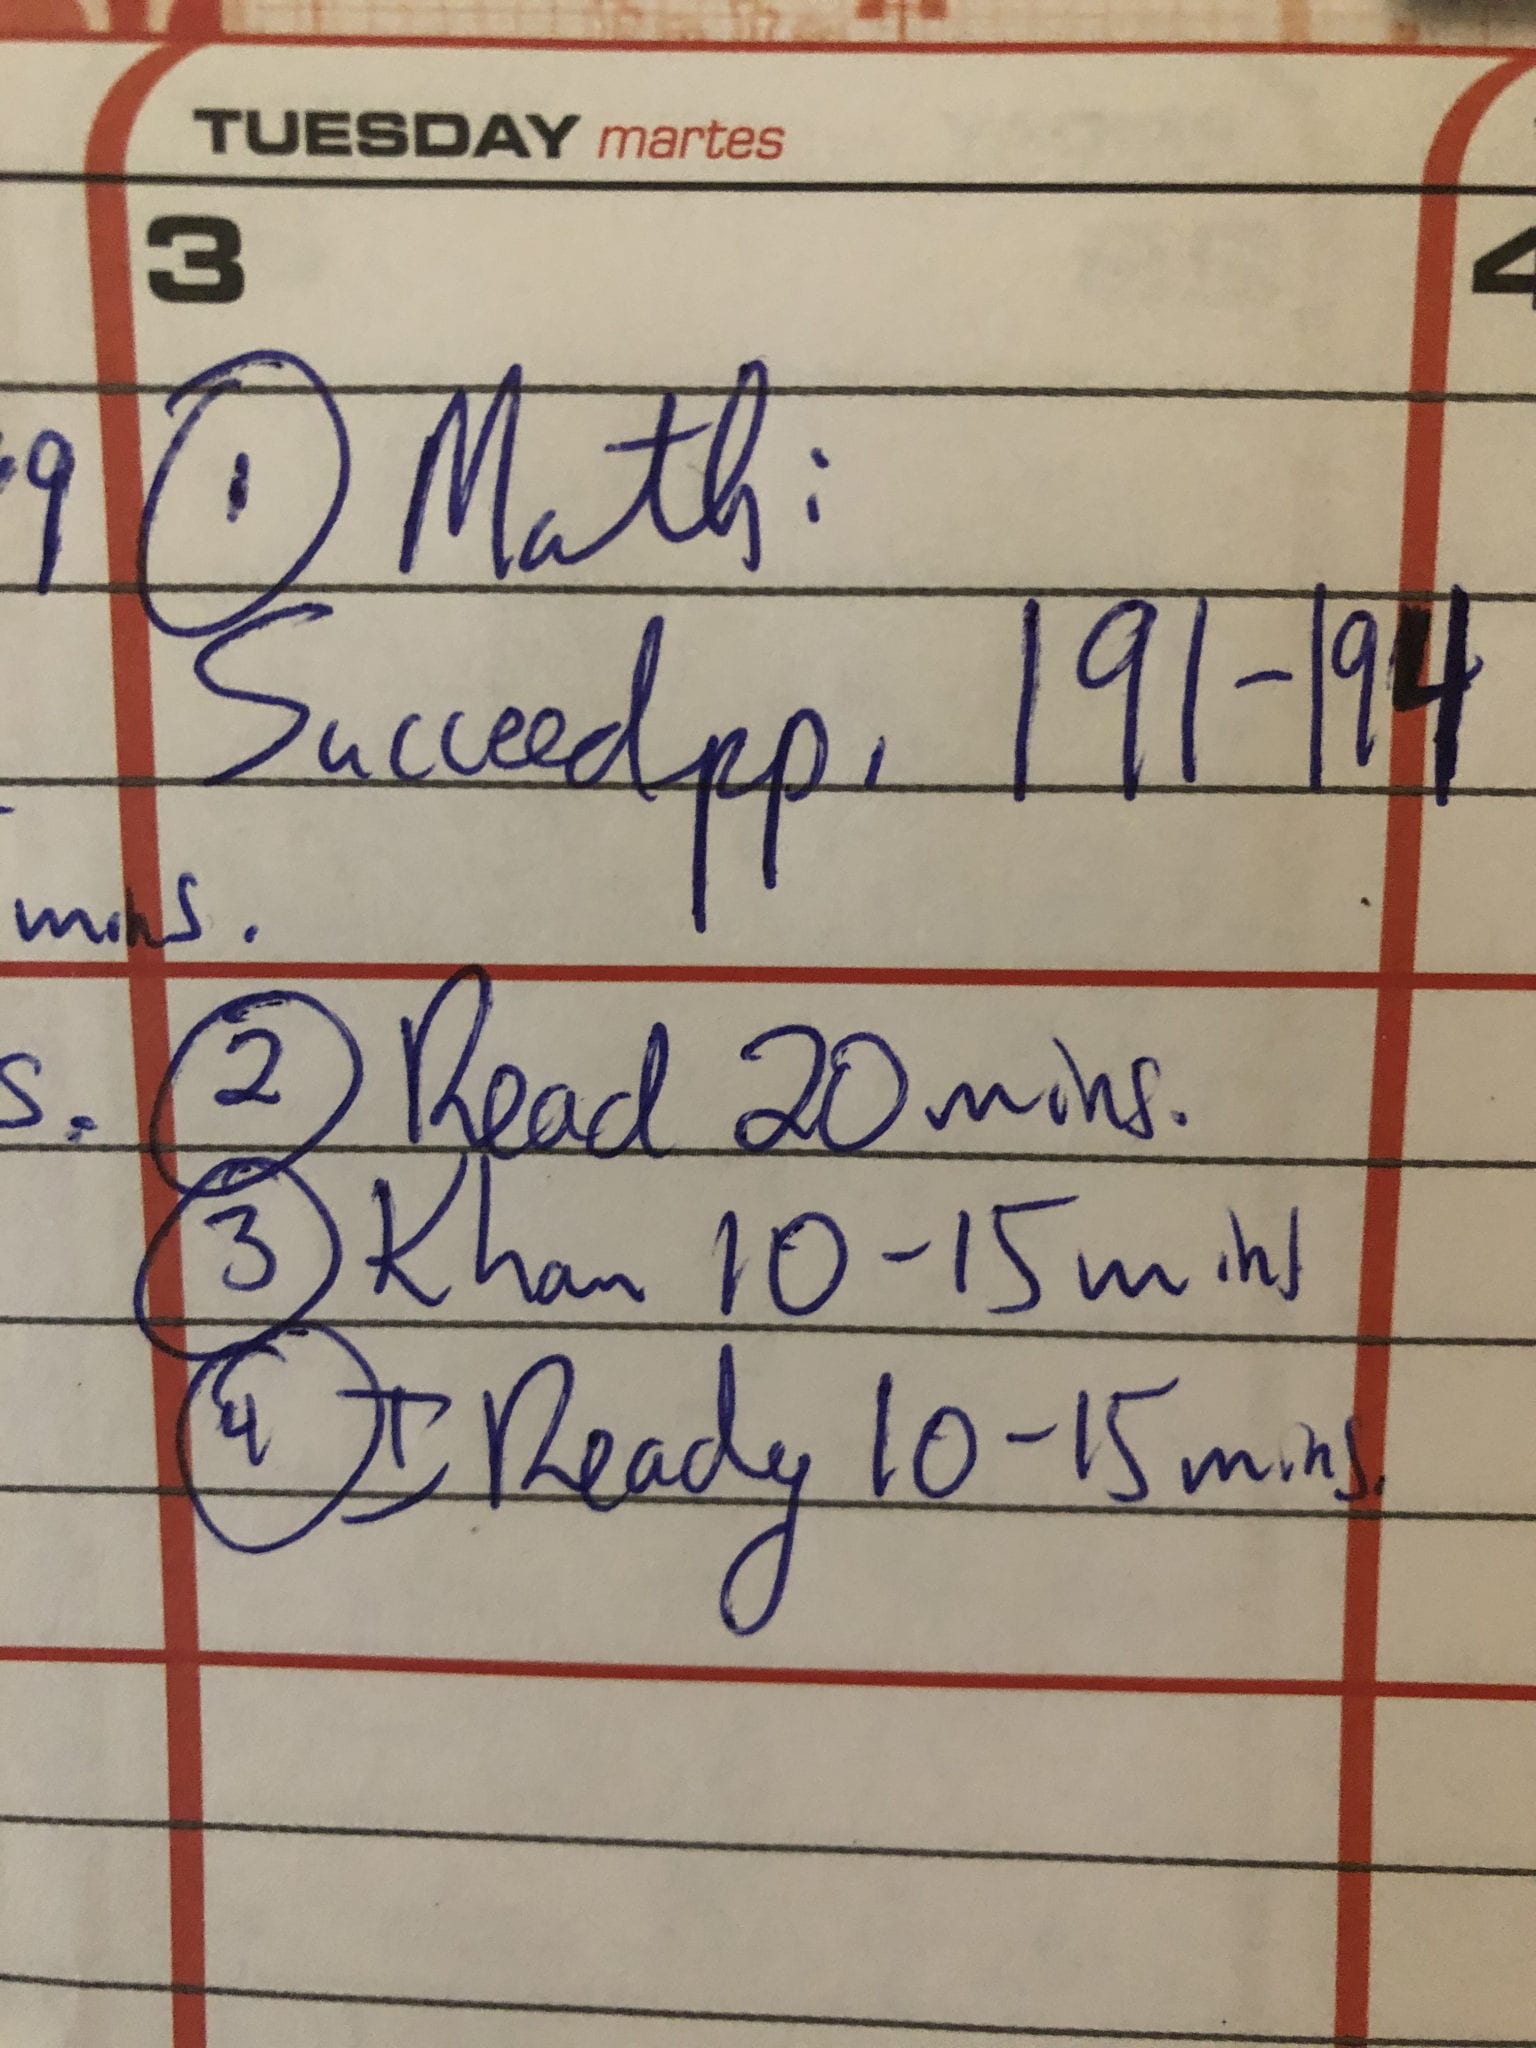 TUESDAY martes
3
4
9
① Math:
Succeed pp. 191-194
mins.
s. ② Read 20 mins.
③ Khan 10-15 mins
④ I Ready 10-15 mins.